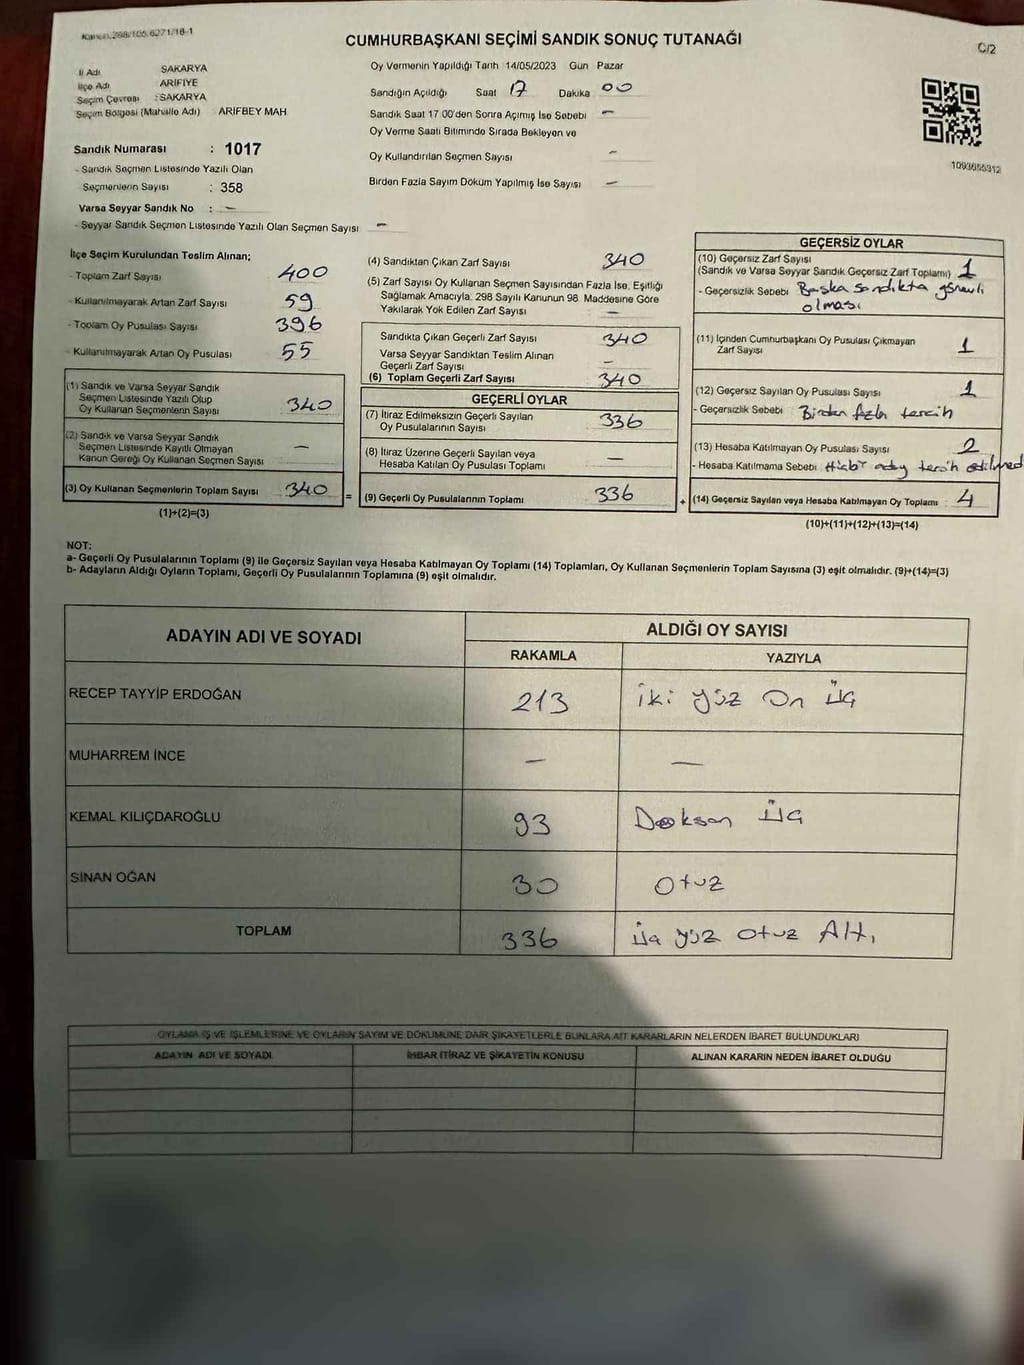 Kanun.298/105.6271/16-1
CUMHURBAŞKANI SEÇİMİ SANDIK SONUÇ TUTANAĞI
C/2
İl Adı SAKARYA
İlçe Adı ARİFİYE
Seçim Çevresi : SAKARYA
Seçim Bölgesi (Mahalle Adı) ARİFBEY MAH
Sandık Numarası : 1017
- Sandık Seçmen Listesinde Yazılı Olan
Seçmenlerin Sayısı : 358
Varsa Seyyar Sandık No : –
- Seyyar Sandık Seçmen Listesinde Yazılı Olan Seçmen Sayısı –
Oy Vermenin Yapıldığı Tarih 14/05/2023 Gün Pazar
Sandığın Açıldığı Saat 17 Dakika 00
Sandık Saat 17:00'den Sonra Açımış İse Sebebi –
Oy Verme Saati Bitiminde Sırada Bekleyen ve
Oy Kullandırılan Seçmen Sayısı –
Birden Fazla Sayım Döküm Yapılmış İse Sayısı –
1093655312
İlçe Seçim Kurulundan Teslim Alınan;
- Toplam Zarf Sayısı 400
- Kullanılmayarak Artan Zarf Sayısı 59
- Toplam Oy Pusulası Sayısı 396
- Kullanılmayarak Artan Oy Pusulası 55
(1) Sandık ve Varsa Seyyar Sandık
Seçmen Listesinde Yazılı Olup
Oy Kullanan Seçmenlerin Sayısı 340
(2) Sandık ve Varsa Seyyar Sandık
Seçmen Listesinde Kayıtlı Olmayan
Kanun Gereği Oy Kullanan Seçmen Sayısı –
(3) Oy Kullanan Seçmenlerin Toplam Sayısı 340 =
(1)+(2)=(3)
(4) Sandıktan Çıkan Zarf Sayısı 340
(5) Zarf Sayısı Oy Kullanan Seçmen Sayısından Fazla İse, Eşitliği
Sağlamak Amacıyla, 298 Sayılı Kanunun 98. Maddesine Göre
Yakılarak Yok Edilen Zarf Sayısı –
Sandıkta Çıkan Geçerli Zarf Sayısı 340
Varsa Seyyar Sandıktan Teslim Alınan
Geçerli Zarf Sayısı –
(6) Toplam Geçerli Zarf Sayısı 340
GEÇERLİ OYLAR
(7) İtiraz Edilmeksizin Geçerli Sayılan
Oy Pusulalarının Sayısı 336
(8) İtiraz Üzerine Geçerli Sayılan veya
Hesaba Katılan Oy Pusulası Toplamı –
(9) Geçerli Oy Pusulalarının Toplamı 336 +
GEÇERSİZ OYLAR
(10) Geçersiz Zarf Sayısı
(Sandık ve Varsa Seyyar Sandık Geçersiz Zarf Toplamı) 1
- Geçersizlik Sebebi Başka sandıkta görevli
olması
(11) İçinden Cumhurbaşkanı Oy Pusulası Çıkmayan
Zarf Sayısı 1
(12) Geçersiz Sayılan Oy Pusulası Sayısı 1
- Geçersizlik Sebebi Birden fazla tercih
(13) Hesaba Katılmayan Oy Pusulası Sayısı 2
- Hesaba Katılmama Sebebi Hiçbir aday tercih edilmed
(14) Geçersiz Sayılan veya Hesaba Katılmayan Oy Toplamı 4
(10)+(11)+(12)+(13)=(14)
NOT:
a- Geçerli Oy Pusulalarının Toplamı (9) ile Geçersiz Sayılan veya Hesaba Katılmayan Oy Toplamı (14) Toplamları, Oy Kullanan Seçmenlerin Toplam Sayısına (3) eşit olmalıdır. (9)+(14)=(3)
b- Adayların Aldığı Oyların Toplamı, Geçerli Oy Pusulalarının Toplamına (9) eşit olmalıdır.
ADAYIN ADI VE SOYADI ALDIĞI OY SAYISI
RAKAMLA YAZIYLA
RECEP TAYYİP ERDOĞAN 213 iki yüz On üç
MUHARREM İNCE – –
KEMAL KILIÇDAROĞLU 93 Doksan üç
SİNAN OĞAN 30 Otuz
TOPLAM 336 üç yüz otuz Altı
OYLAMA İŞ VE İŞLEMLERİNE VE OYLARIN SAYIM VE DÖKÜMÜNE DAİR ŞİKAYETLERLE BUNLARA AİT KARARLARIN NELERDEN İBARET BULUNDUKLARI
ADAYIN ADI VE SOYADI İHBAR İTİRAZ VE ŞİKAYETİN KONUSU ALINAN KARARIN NEDEN İBARET OLDUĞU